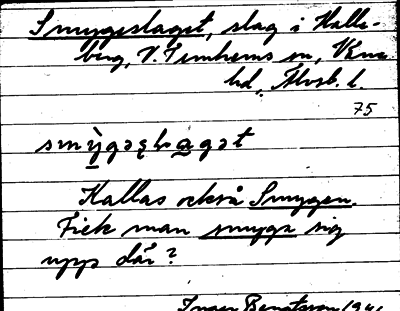 Smygeslaget, slag i Halle-
berg, V. Tunhems sn,Väne
hd, Älvsb. l.
75
Kallas också Smygen.
Fick man smyga sig
upp där?
Inger Bengtsson